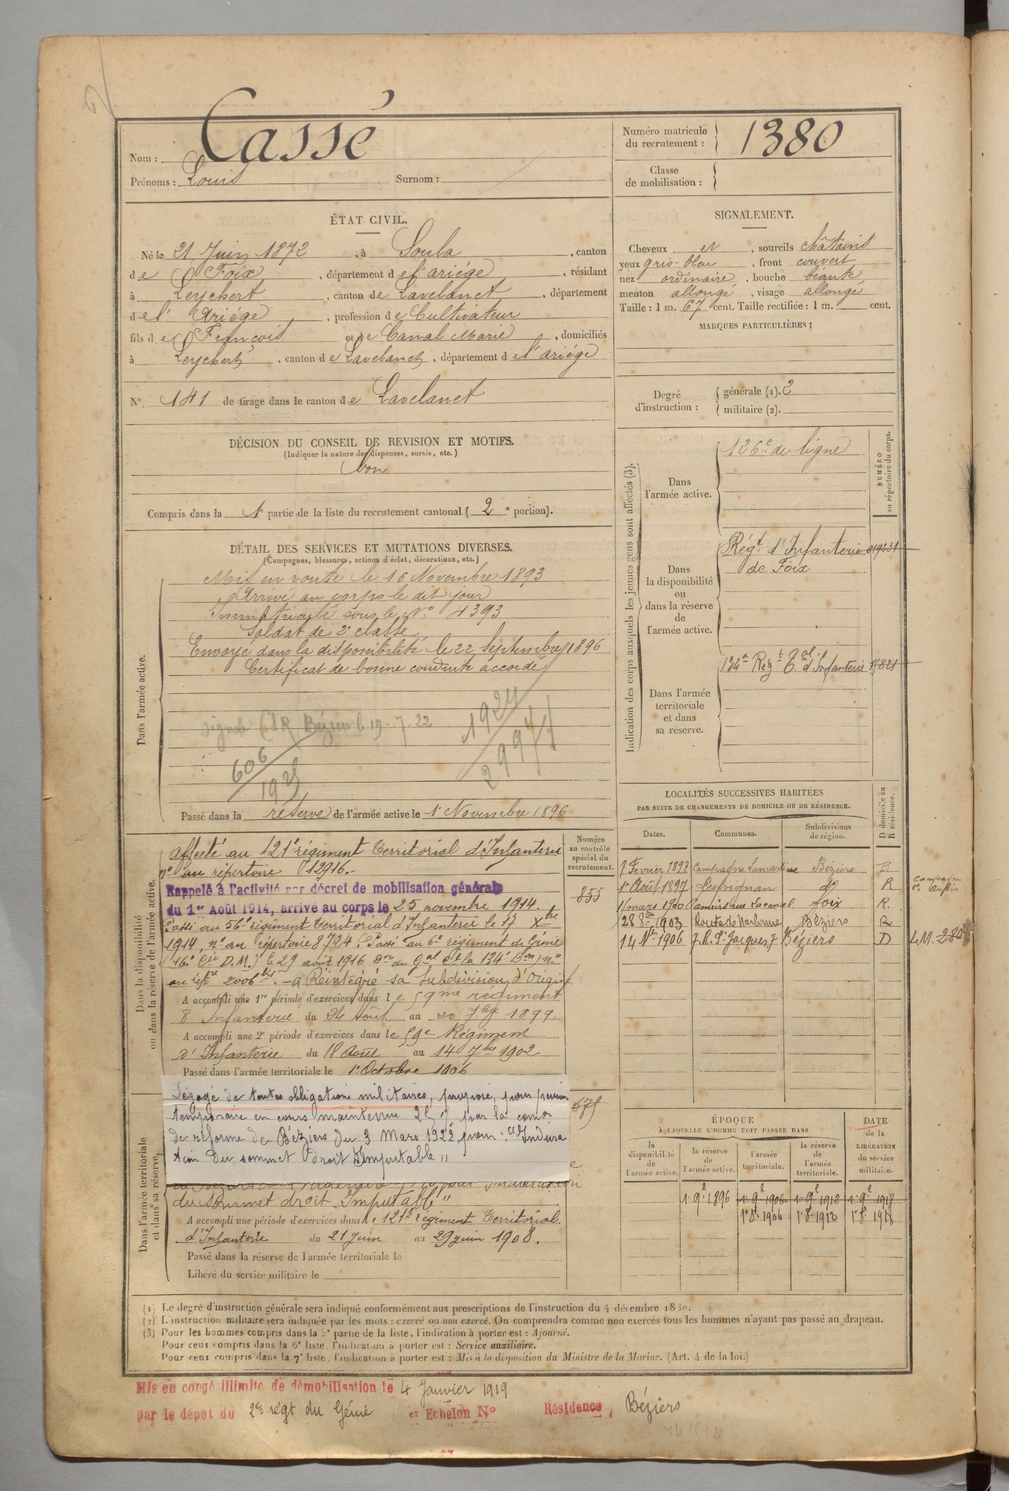 Nom : Cassé
Prénoms : Louis Surnom :
Numéro matricule du recrutement : 1380
Classe de mobilisation :
ÉTAT CIVIL.
Né le 21 Juin 1872, à Soula, canton
de Foix, département de l'ariége, résidant
à Leychert, canton de Lavelanet, département
de l'Ariége, profession de Cultivateur
fils de François et de Canal Marie, domiciliés
à Leychert, canton de Lavelanet, département de l'ariége
N° 141 de tirage dans le canton de Lavelanet
SIGNALEMENT.
Cheveux et, sourcils châtains
yeux gris-bleu, front couvert
nez ordinaire, bouche béante
menton allongé, visage allongé
Taille : 1 m. 67 cent. Taille rectifiée : 1 m. cent.
MARQUES PARTICULIÈRES :
Degré d'instruction : générale (1). 2
militaire (2).
DÉCISION DU CONSEIL DE REVISION ET MOTIFS.
(Indiquer la nature des dispenses, sursis, etc.)
bon
Compris dans la 1e partie de la liste du recrutement cantonal (2e portion).
DÉTAIL DES SERVICES ET MUTATIONS DIVERSES.
(Campagnes, blessures, actions d'éclat, décorations, etc.)
Dans l'armée active.
Mis en route le 16 Novembre 1893
Arrivé au corps le dit jour
Immatriculé sous le N° 4393
Soldat de 2e classe
Envoyé dans la disponibilité le 22 Septembre 1896
Certificat de bonne conduite accordé
Béziers le 19-7-22
1924
29977
606
1925
Passé dans la réserve de l'armée active le 1e Novembre 1896
Indication des corps auxquels les jeunes gens sont affectés (3).
NUMÉRO au répertoire du corps.
Dans l'armée active.
126e de ligne
Dans la disponibilité ou dans la réserve de l'armée active.
Régt d'Infanterie
de Foix
Dans l'armée territoriale et dans sa réserve.
Regt Tal d'Infanterie
LOCALITÉS SUCCESSIVES HABITÉES
PAR SUITE DE CHANGEMENTS DE DOMICILE OU DE RÉSIDENCE.
D domicile ou R résidence.
Dates. Communes. Subdivisions de région.
7 Février 1897 Campagne Béziers R
1er Août 1897 Lespignan d° R
16 mars 1900 Foix R.
28 8bre 1903 Route de Narbonne Béziers R
14 1906 7. R. St Jacques 7 Béziers D
Dans la disponibilité ou dans la réserve de l'armée active.
Numéro au contrôle spécial du recrutement.
855
Affecté au 121e régiment Territorial d'Infanterie
n° au répertoire 12916.
Rappelé à l'activité par décret de mobilisation générale
du 1er Août 1914, arrivé au corps le 25 novembre 1914.
Passé au 56e régiment Territorial d'Infanterie le 17 Xbre
1914, n° au répertoire 8724. Passé au 6e régiment de Génie
(16e Cie D.M.) le 29 août 1916
Réintégré sa subdivision d'origine
A accompli une 1re période d'exercices dans le 59me régiment
d'Infanterie du 24 Août au 20 7bre 1899
A accompli une 2e période d'exercices dans le 59e Régiment
d'Infanterie du 18 Août au 14 7bre 1902
Passé dans l'armée territoriale le 1e Octobre 1906
Dans l'armée territoriale et dans sa réserve.
675
Dégagé de toutes obligations militaires,
temporaire en cours maintenue par la comon
de réforme de Béziers du 3 Mars 1922 pour : Indura
tion du sommet droit Imputable "
du sommet droit Imputable "
A accompli une période d'exercices dans le 121e régiment Territorial
d'Infanterie du 21 juin au 29 juin 1908.
Passé dans la réserve de l'armée territoriale le
Libéré du service militaire le
ÉPOQUE
À LAQUELLE L'HOMME DOIT PASSER DANS
DATE de la LIBÉRATION du service militaire.
la disponibilité de l'armée active. la réserve de l'armée active. l'armée territoriale. la réserve de l'armée territoriale.
1. 9e 1896 1. 9e 1906 1. 9e 1912 1. 9e 1918
(1) Le degré d'instruction générale sera indiqué conformément aux prescriptions de l'instruction du 4 décembre
(2) L'instruction militaire sera indiquée par les mots : exercé ou non exercé. On comprendra comme non exercés tous les hommes n'ayant pas passé au drapeau.
(3) Pour les hommes compris dans la 5e partie de la liste, l'indication à porter est : Ajourné.
Pour ceux compris dans la 6e liste, l'indication à porter est : Service auxiliaire.
Pour ceux compris dans la 7e liste, l'indication à porter est : Mis à la disposition du Ministre de la Marine. (Art. 4 de la loi.)
Mis en congé illimité de démobilisation le 4 Janvier 1919
par le dépot du 2e régt du Génie et Echelon N° Résidence, Béziers